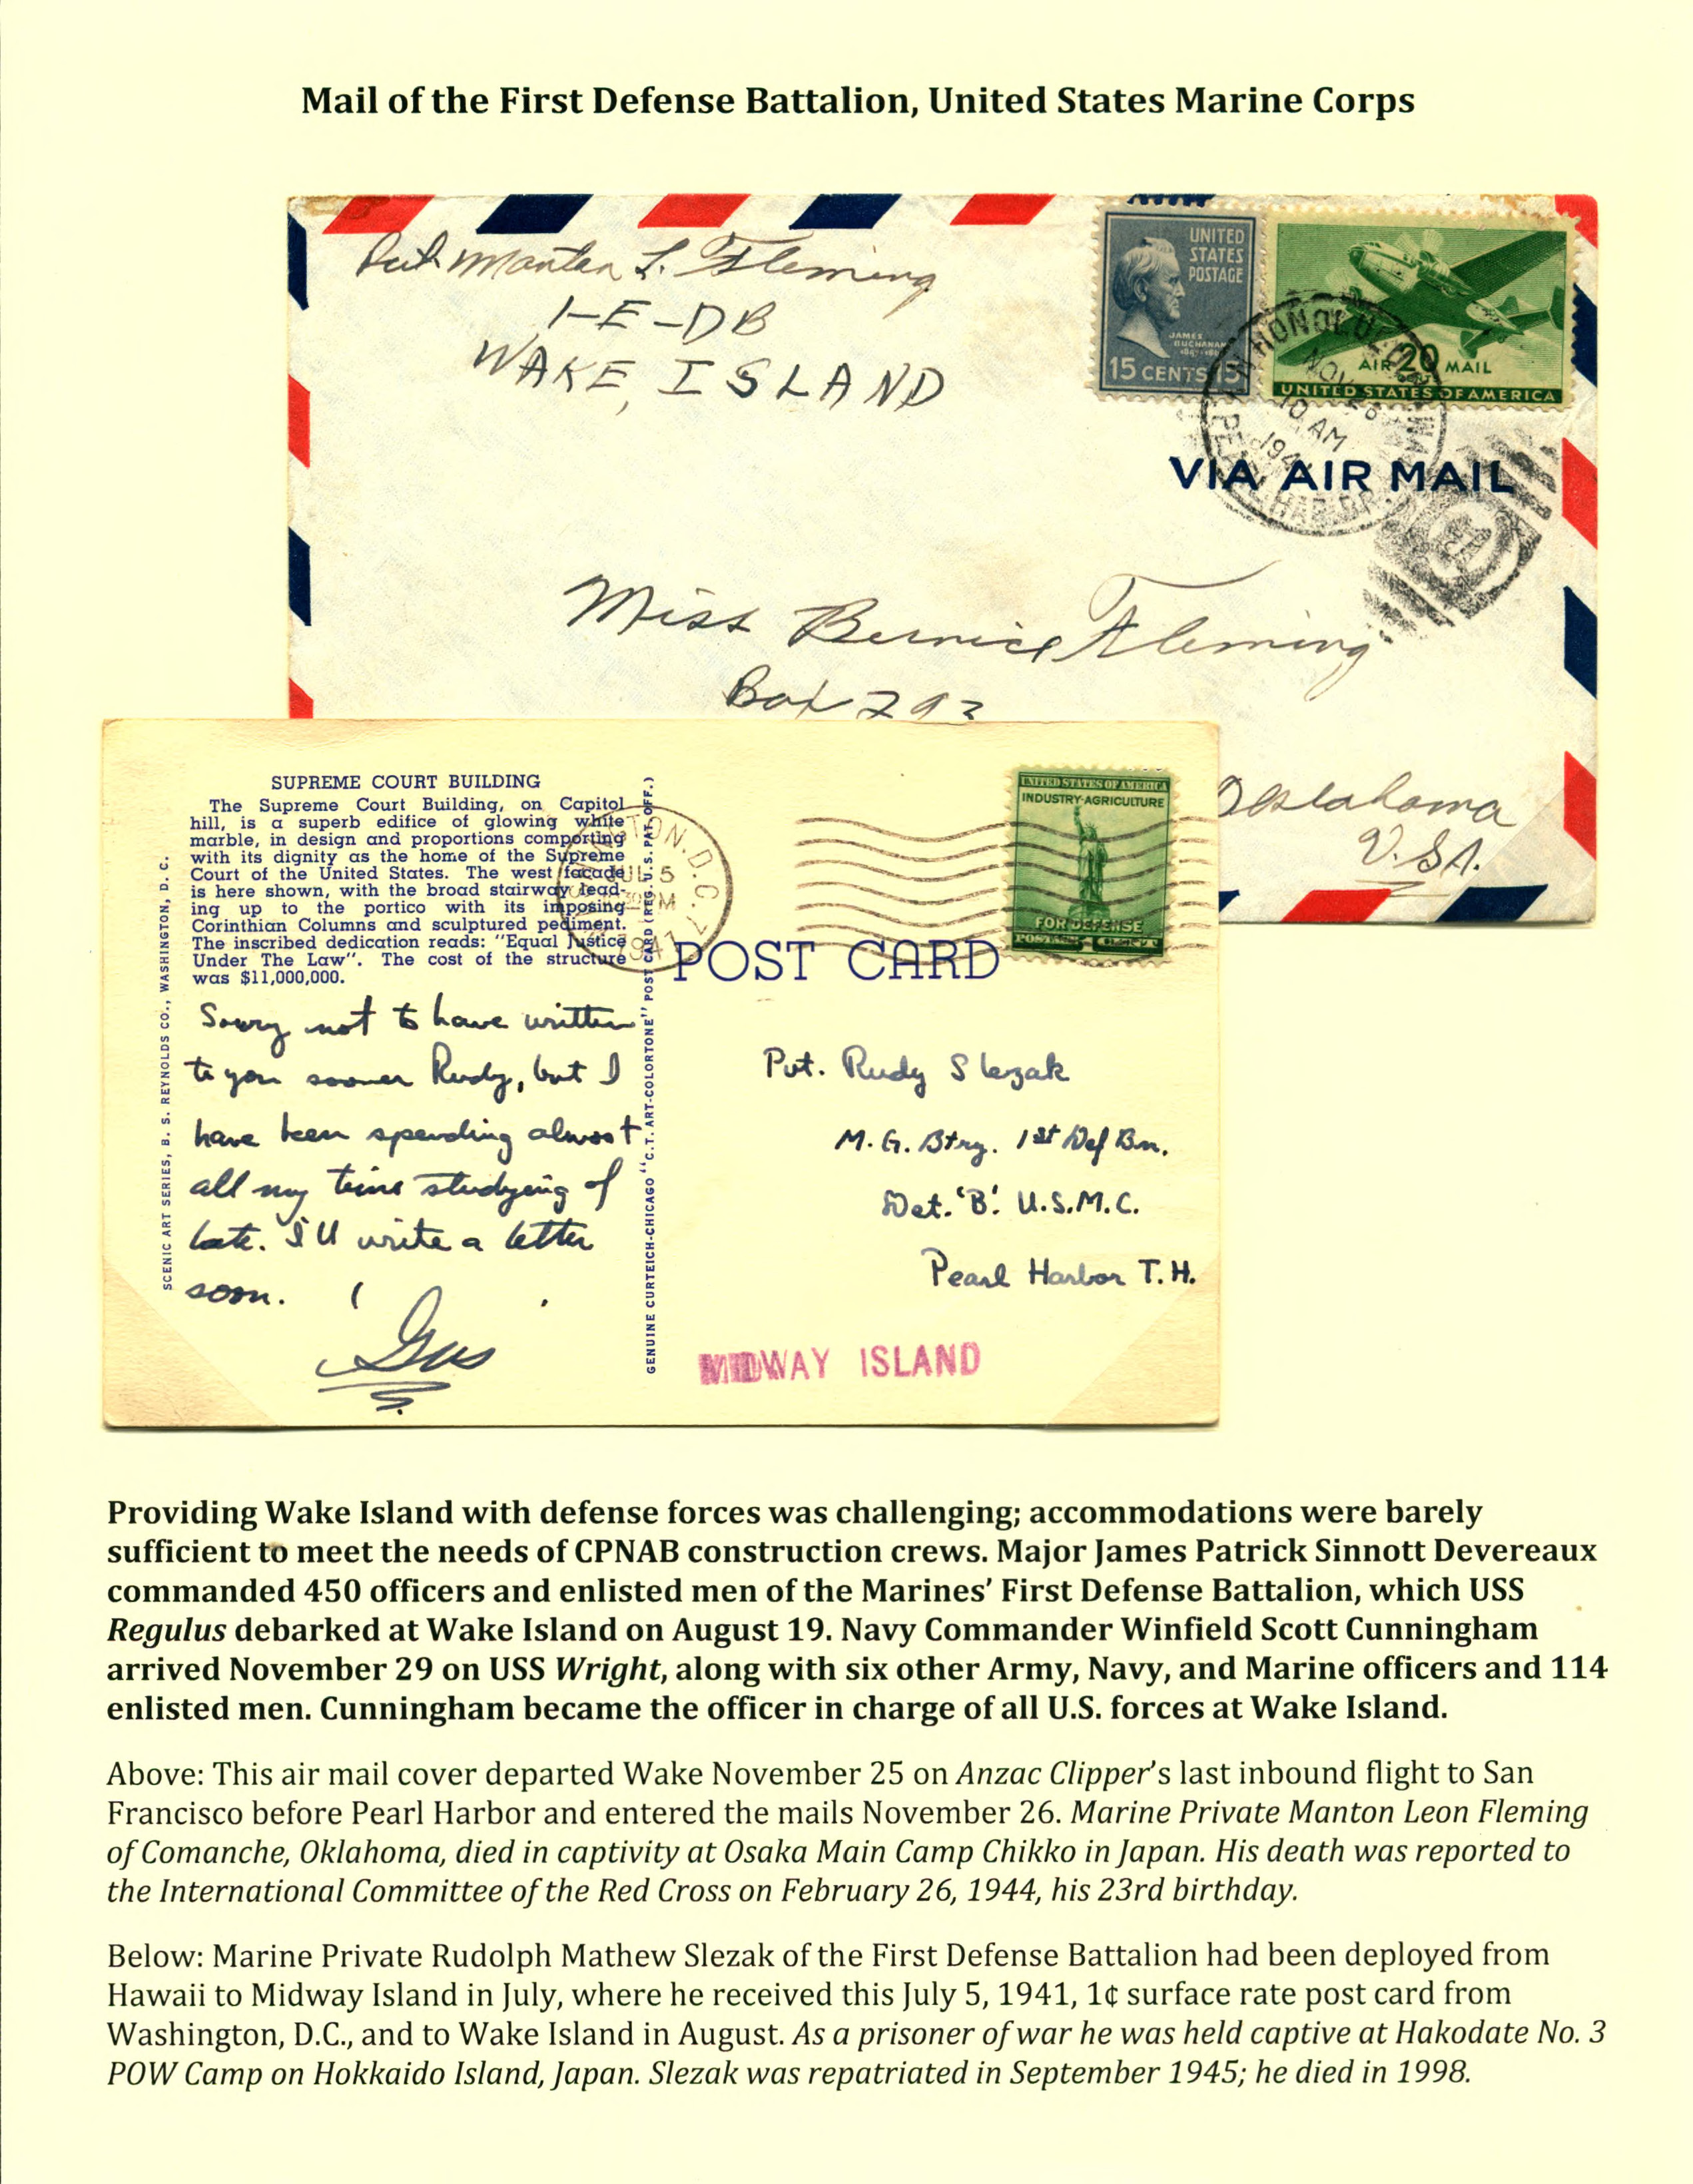 Mail of the First Defense Battalion, United States Marine Corps
Pvt. Manton L. Fleming
1-E-DB
WAKE, ISLAND
UNITED
STATES
POSTAGE
JAMES
BUCHANAN
15 CENTS 15
AIR 20 MAIL
UNITED STATES OF AMERICA
HONOLULU
NOV 26
10 AM
194
PEARL HARBOR
VIA AIR MAIL
Miss Bernice Fleming
Box 293
Oklahoma
U.S.A.
SUPREME COURT BUILDING
The Supreme Court Building, on Capitol
hill, is a superb edifice of glowing white
marble, in design and proportions comporting
with its dignity as the home of the Supreme
Court of the United States. The west facade
is here shown, with the broad stairway lead-
ing up to the portico with its imposing
Corinthian Columns and sculptured pediment.
The inscribed dedication reads: "Equal Justice
Under The Law". The cost of the structure
was $11,000,000.
SCENIC ART SERIES, B. S. REYNOLDS CO., WASHINGTON, D. C.
GENUINE CURTEICH-CHICAGO "C.T. ART-COLORTONE" POST CARD (REG. U.S. PAT. OFF.)
WASHINGTON, D.C. 7
JUL 5
30 PM
1941
UNITED STATES OF AMERICA
INDUSTRY-AGRICULTURE
FOR DEFENSE
POST CARD
Sorry not to have written
to you sooner Rudy, but I
have been spending almost
all my time studying of
late. I'll write a letter
soon.
Gus
Pvt. Rudy Slezak
M. G. Btry. 1st Def Bn.
Det. 'B'. U.S.M.C.
Pearl Harbor T.H.
MIDWAY ISLAND
Providing Wake Island with defense forces was challenging; accommodations were barely
sufficient to meet the needs of CPNAB construction crews. Major James Patrick Sinnott Devereaux
commanded 450 officers and enlisted men of the Marines' First Defense Battalion, which USS
Regulus debarked at Wake Island on August 19. Navy Commander Winfield Scott Cunningham
arrived November 29 on USS Wright, along with six other Army, Navy, and Marine officers and 114
enlisted men. Cunningham became the officer in charge of all U.S. forces at Wake Island.
Above: This air mail cover departed Wake November 25 on Anzac Clipper's last inbound flight to San
Francisco before Pearl Harbor and entered the mails November 26. Marine Private Manton Leon Fleming
of Comanche, Oklahoma, died in captivity at Osaka Main Camp Chikko in Japan. His death was reported to
the International Committee of the Red Cross on February 26, 1944, his 23rd birthday.
Below: Marine Private Rudolph Mathew Slezak of the First Defense Battalion had been deployed from
Hawaii to Midway Island in July, where he received this July 5, 1941, 1¢ surface rate post card from
Washington, D.C., and to Wake Island in August. As a prisoner of war he was held captive at Hakodate No. 3
POW Camp on Hokkaido Island, Japan. Slezak was repatriated in September 1945; he died in 1998.